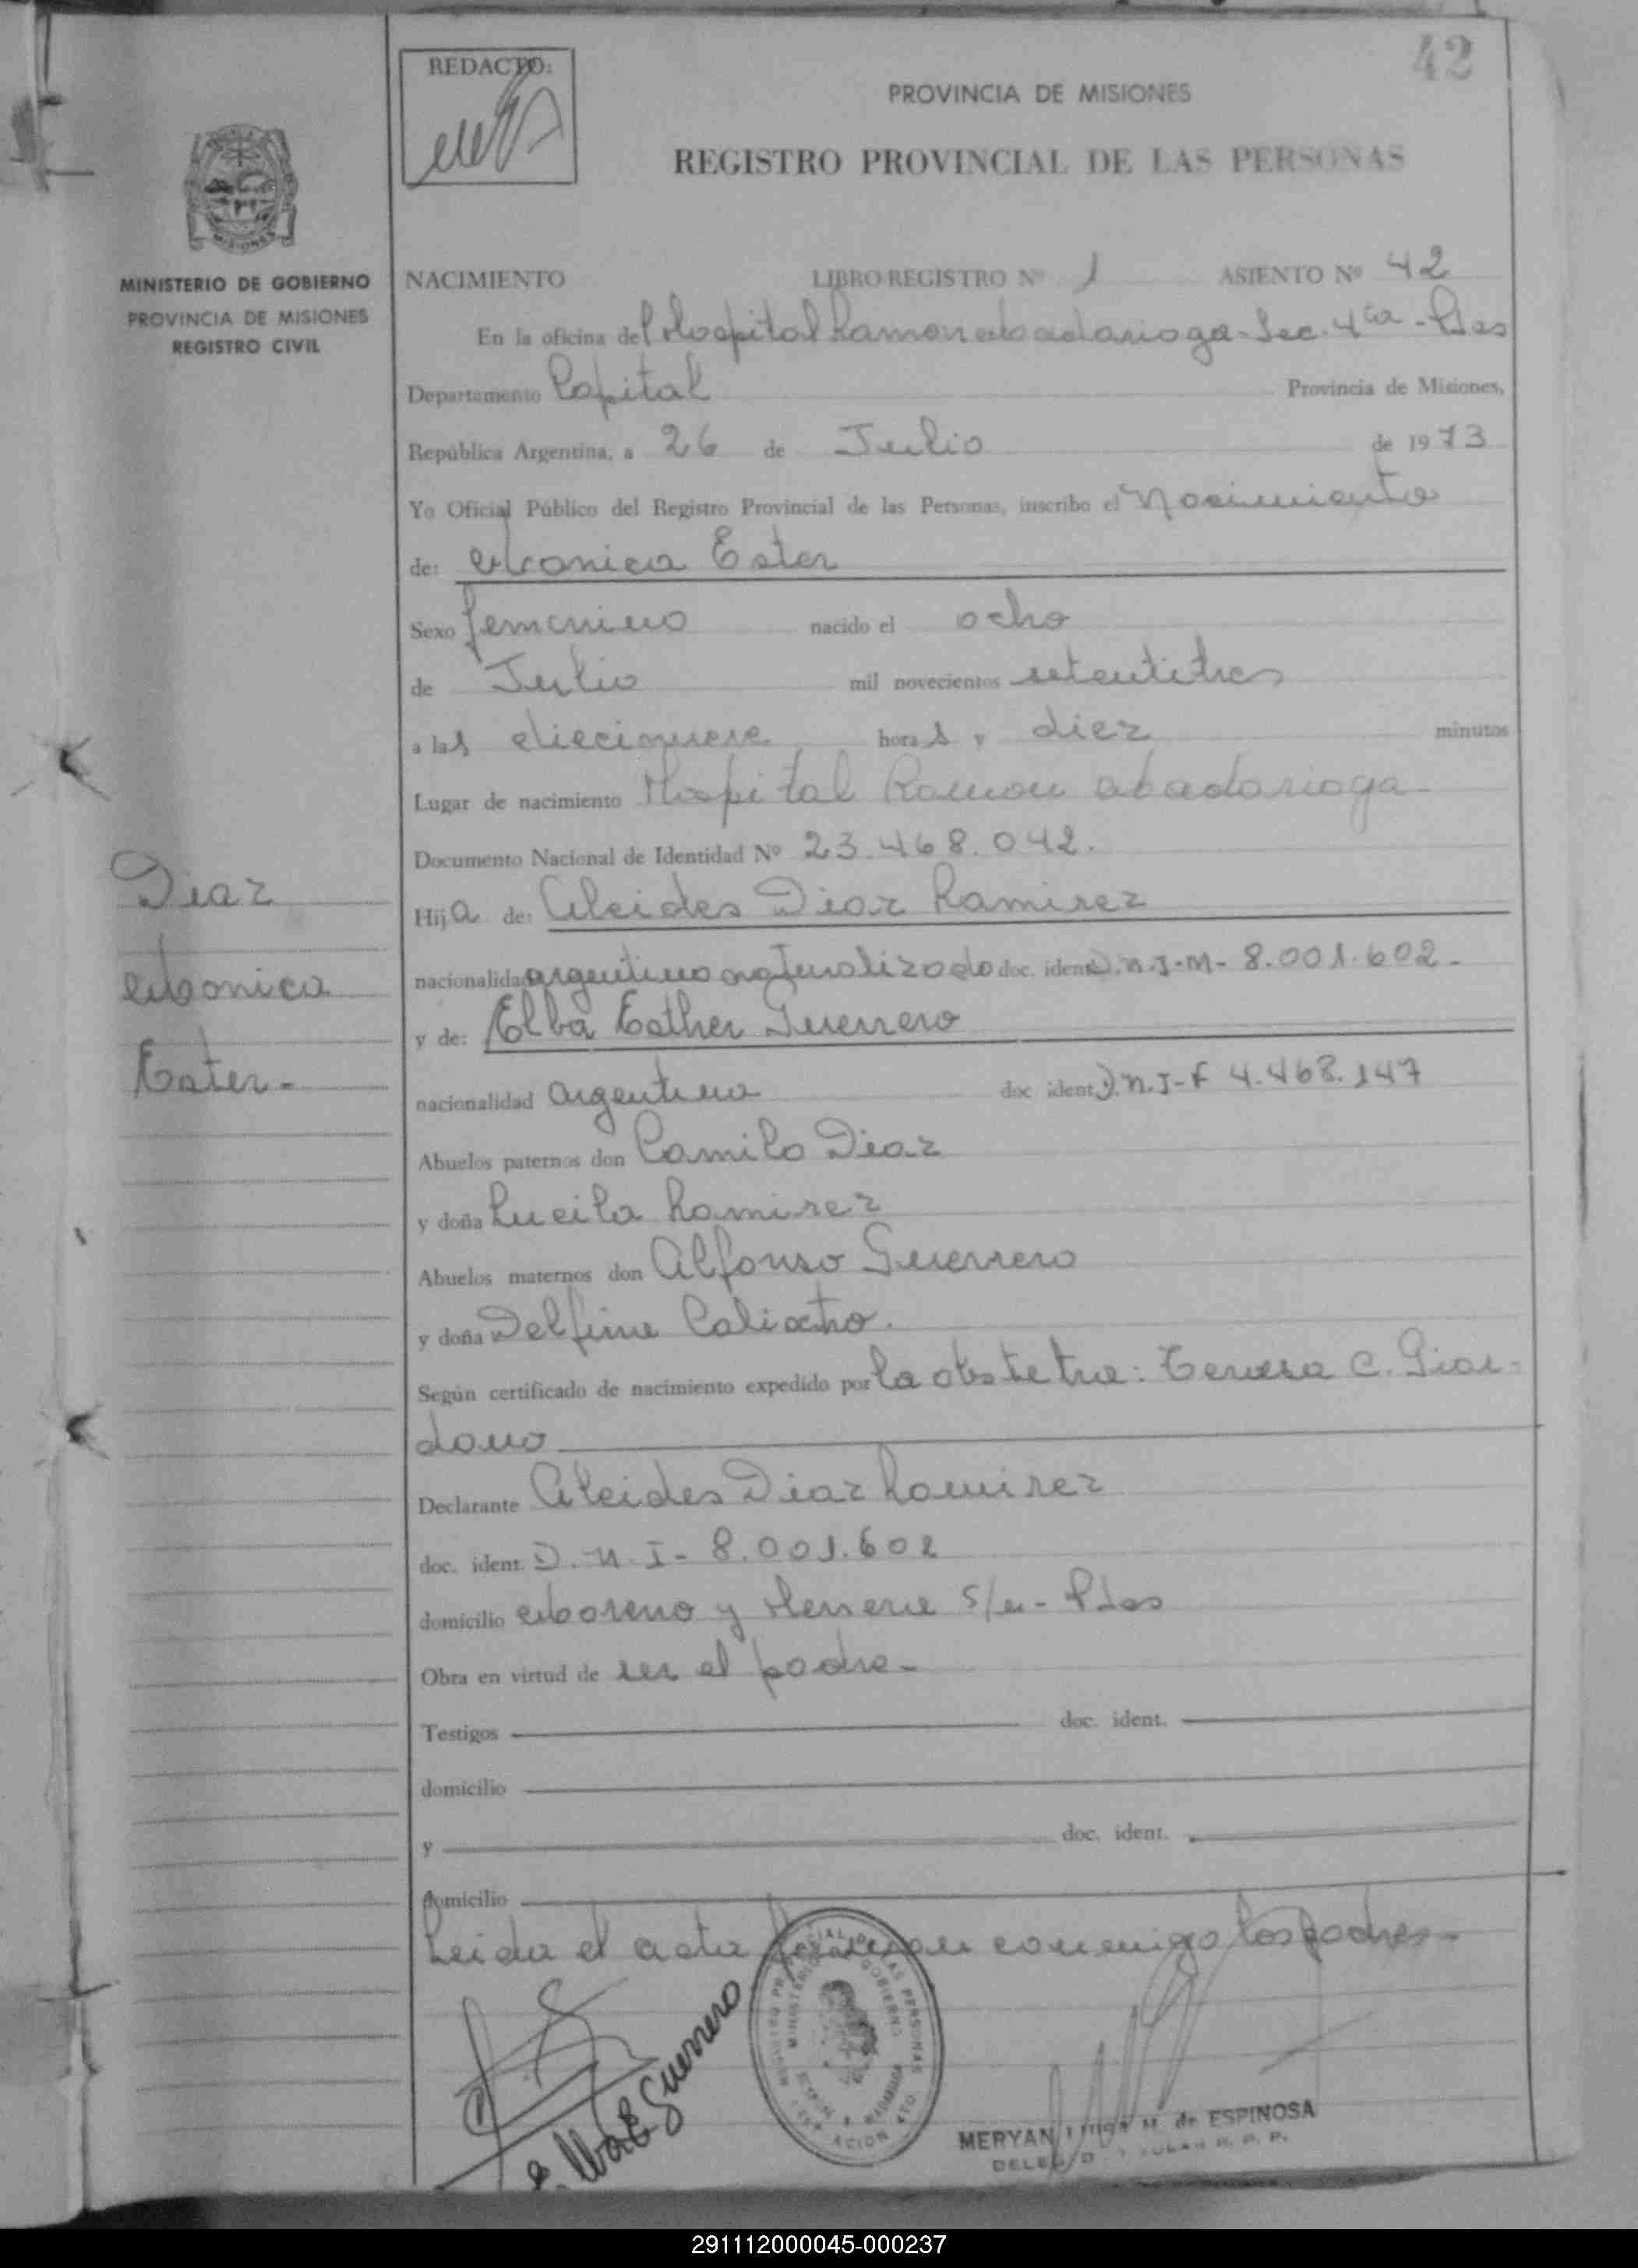 42
REDACTO:
PROVINCIA DE MISIONES
REGISTRO PROVINCIAL DE LAS PERSONAS
MISIONES
MINISTERIO DE GOBIERNO
PROVINCIA DE MISIONES
REGISTRO CIVIL
NACIMIENTO LIBRO REGISTRO Nº 1 ASIENTO Nº 42
En la oficina del Hospital Ramon Madariaga - Sec. 4ta - Pdas
Departamento Capital Provincia de Misiones,
República Argentina, a 26 de Julio de 1973
Yo Oficial Público del Registro Provincial de las Personas, inscribo el Nacimiento
de: Monica Ester
Sexo femenino nacido el ocho
de Julio mil novecientos setentitres
a las diecinueve horas y diez minutos
Lugar de nacimiento Hospital Ramon Madariaga
Documento Nacional de Identidad Nº 23.468.042.
Hija de: Alcides Diaz Ramirez
nacionalidad argentino naturalizado doc. ident. D.N.I-M- 8.001.602-
y de: Elba Esther Guerrero
nacionalidad argentina doc ident. D.N.I-F 4.468.147
Abuelos paternos don Camilo Diaz
y doña Lucila Ramirez
Abuelos maternos don Alfonso Guerrero
y doña Delfina Calixto.
Según certificado de nacimiento expedido por la obstetra: Teresa C. Giar-
dano
Declarante Alcides Diaz Ramirez
doc. ident. D.N.I- 8.001.602
domicilio Moreno y s/n - Pdas
Obra en virtud de ser el padre-
Testigos doc. ident.
domicilio
y doc. ident.
domicilio
Leida el acta firman conmigo los padres-
Diaz
Monica
Ester-
E. Guerrero
MERYAN M. de ESPINOSA
291112000045-000237